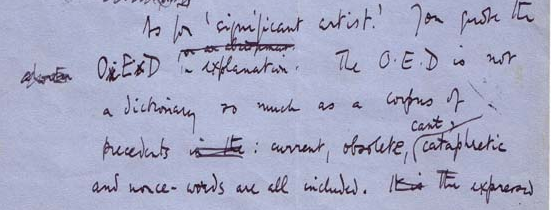 As for 'significant artist.' You quote the
O.E.D in explanation. The O.E.D is not
a dictionary so much as a corpus of
precedents in the : current, obsolete, cant, cataphretic
and nonce-words are all included. It is The expressed